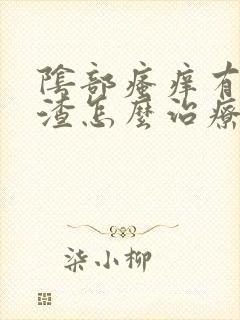 陰部瘙痒有
渣怎麼治療
柒小柳